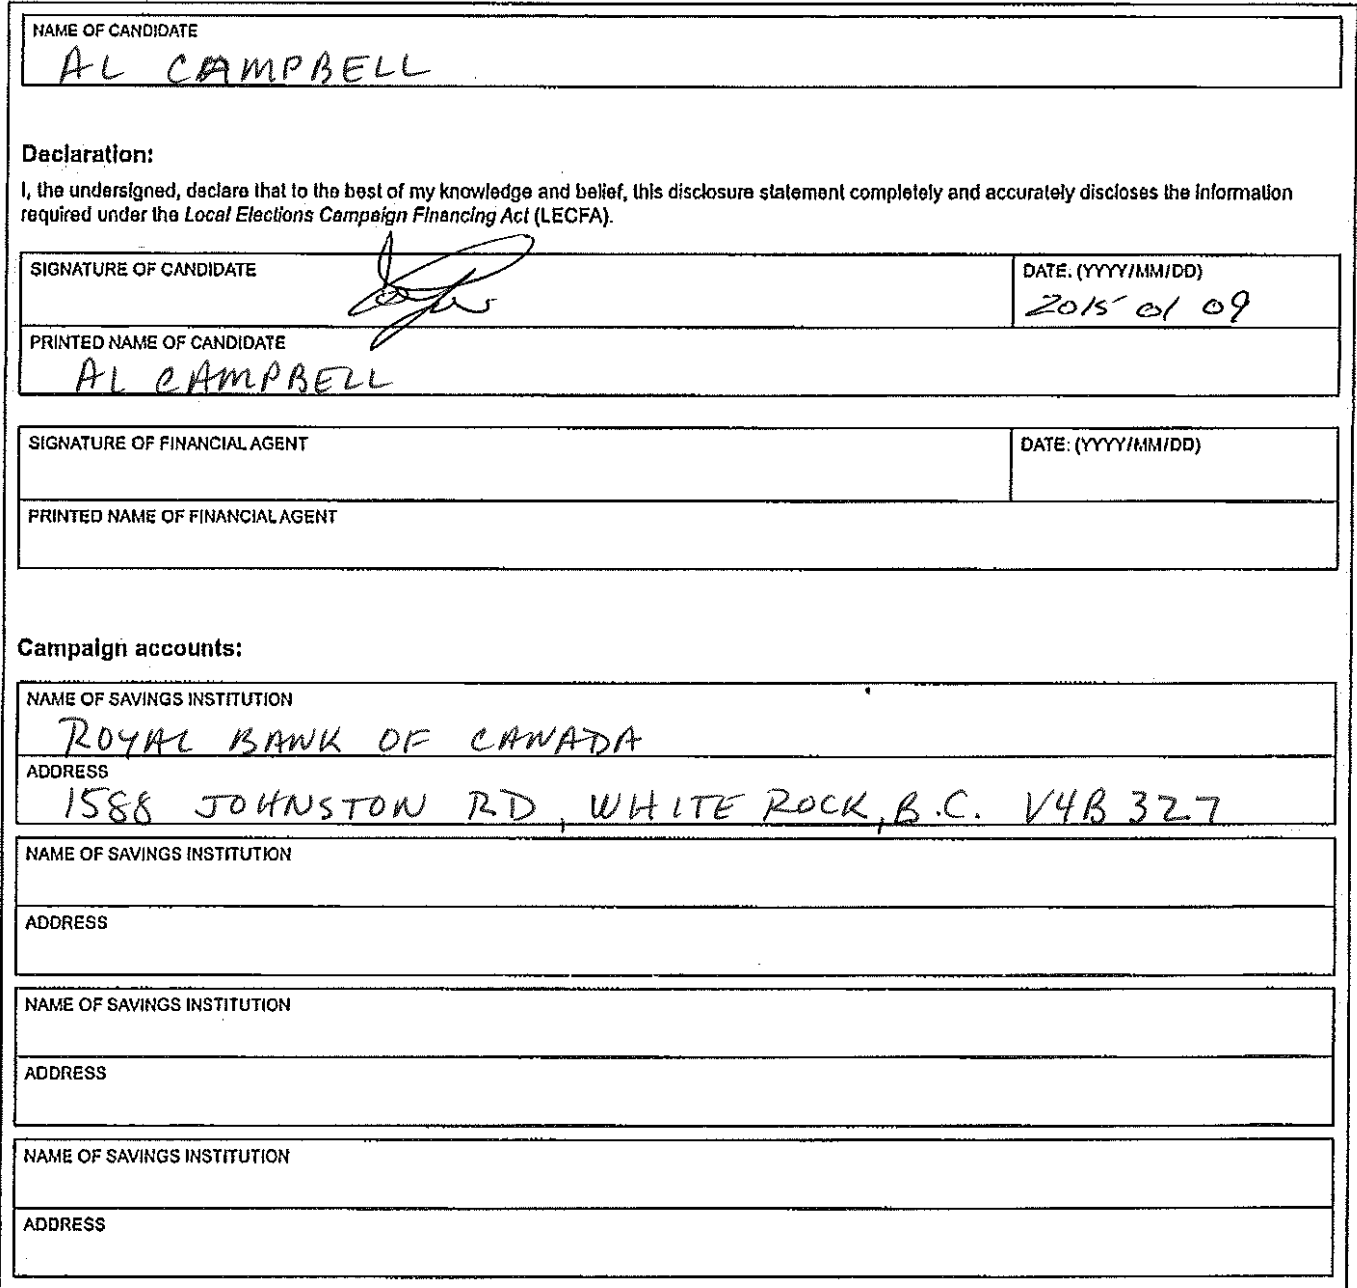 NAME OF CANDIDATE
AL CAMPBELL
Declaration:
I, the undersigned, declare that to the best of my knowledge and belief, this disclosure statement completely and accurately discloses the information
required under the Local Elections Campaign Financing Act (LECFA).
SIGNATURE OF CANDIDATE
DATE: (YYYY/MM/DD)
2015 01 09
PRINTED NAME OF CANDIDATE
AL CAMPBELL
SIGNATURE OF FINANCIAL AGENT
DATE: (YYYY/MM/DD)
PRINTED NAME OF FINANCIAL AGENT
Campaign accounts:
NAME OF SAVINGS INSTITUTION
ROYAL BANK OF CANADA
ADDRESS
1588 JOHNSTON RD, WHITE ROCK, B.C. V4B 3Z7
NAME OF SAVINGS INSTITUTION
ADDRESS
NAME OF SAVINGS INSTITUTION
ADDRESS
NAME OF SAVINGS INSTITUTION
ADDRESS